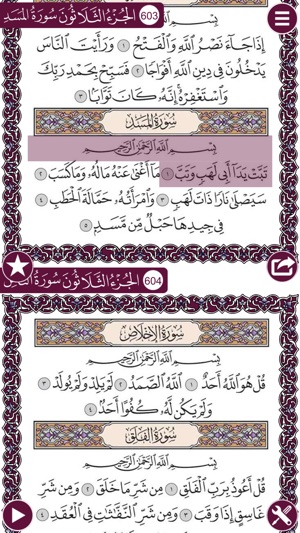 603
الجُزْءُ الثَّلَاثُونَ سُورَةُ المَسَدِ
بِسْمِ ٱللَّهِ ٱلرَّحْمَٰنِ ٱلرَّحِيمِ
إِذَا جَآءَ نَصْرُ ٱللَّهِ وَٱلْفَتْحُ ١ وَرَأَيْتَ ٱلنَّاسَ
يَدْخُلُونَ فِى دِينِ ٱللَّهِ أَفْوَاجًا ٢ فَسَبِّحْ بِحَمْدِ رَبِّكَ
وَٱسْتَغْفِرْهُ إِنَّهُۥ كَانَ تَوَّابًۢا ٣
سُورَةُ المَسَدِ
بِسْمِ ٱللَّهِ ٱلرَّحْمَٰنِ ٱلرَّحِيمِ
تَبَّتْ يَدَآ أَبِى لَهَبٍ وَتَبَّ ١ مَآ أَغْنَىٰ عَنْهُ مَالُهُۥ وَمَا كَسَبَ ٢
سَيَصْلَىٰ نَارًا ذَاتَ لَهَبٍ ٣ وَٱمْرَأَتُهُۥ حَمَّالَةَ ٱلْحَطَبِ ٤
فِى جِيدِهَا حَبْلٌ مِّن مَّسَدٍۭ ٥
604
الجُزْءُ الثَّلَاثُونَ سُورَةُ
سُورَةُ الإِخْلَاصِ
بِسْمِ ٱللَّهِ ٱلرَّحْمَٰنِ ٱلرَّحِيمِ
قُلْ هُوَ ٱللَّهُ أَحَدٌ ١ ٱللَّهُ ٱلصَّمَدُ ٢ لَمْ يَلِدْ وَلَمْ يُولَدْ ٣
وَلَمْ يَكُن لَّهُۥ كُفُوًا أَحَدٌۢ ٤
سُورَةُ الفَلَقِ
بِسْمِ ٱللَّهِ ٱلرَّحْمَٰنِ ٱلرَّحِيمِ
قُلْ أَعُوذُ بِرَبِّ ٱلْفَلَقِ ١ مِن شَرِّ مَا خَلَقَ ٢ وَمِن شَرِّ
غَاسِقٍ إِذَا وَقَبَ ٣ وَمِن شَرِّ ٱلنَّفَّٰثَٰتِ فِى ٱلْعُقَدِ ٤